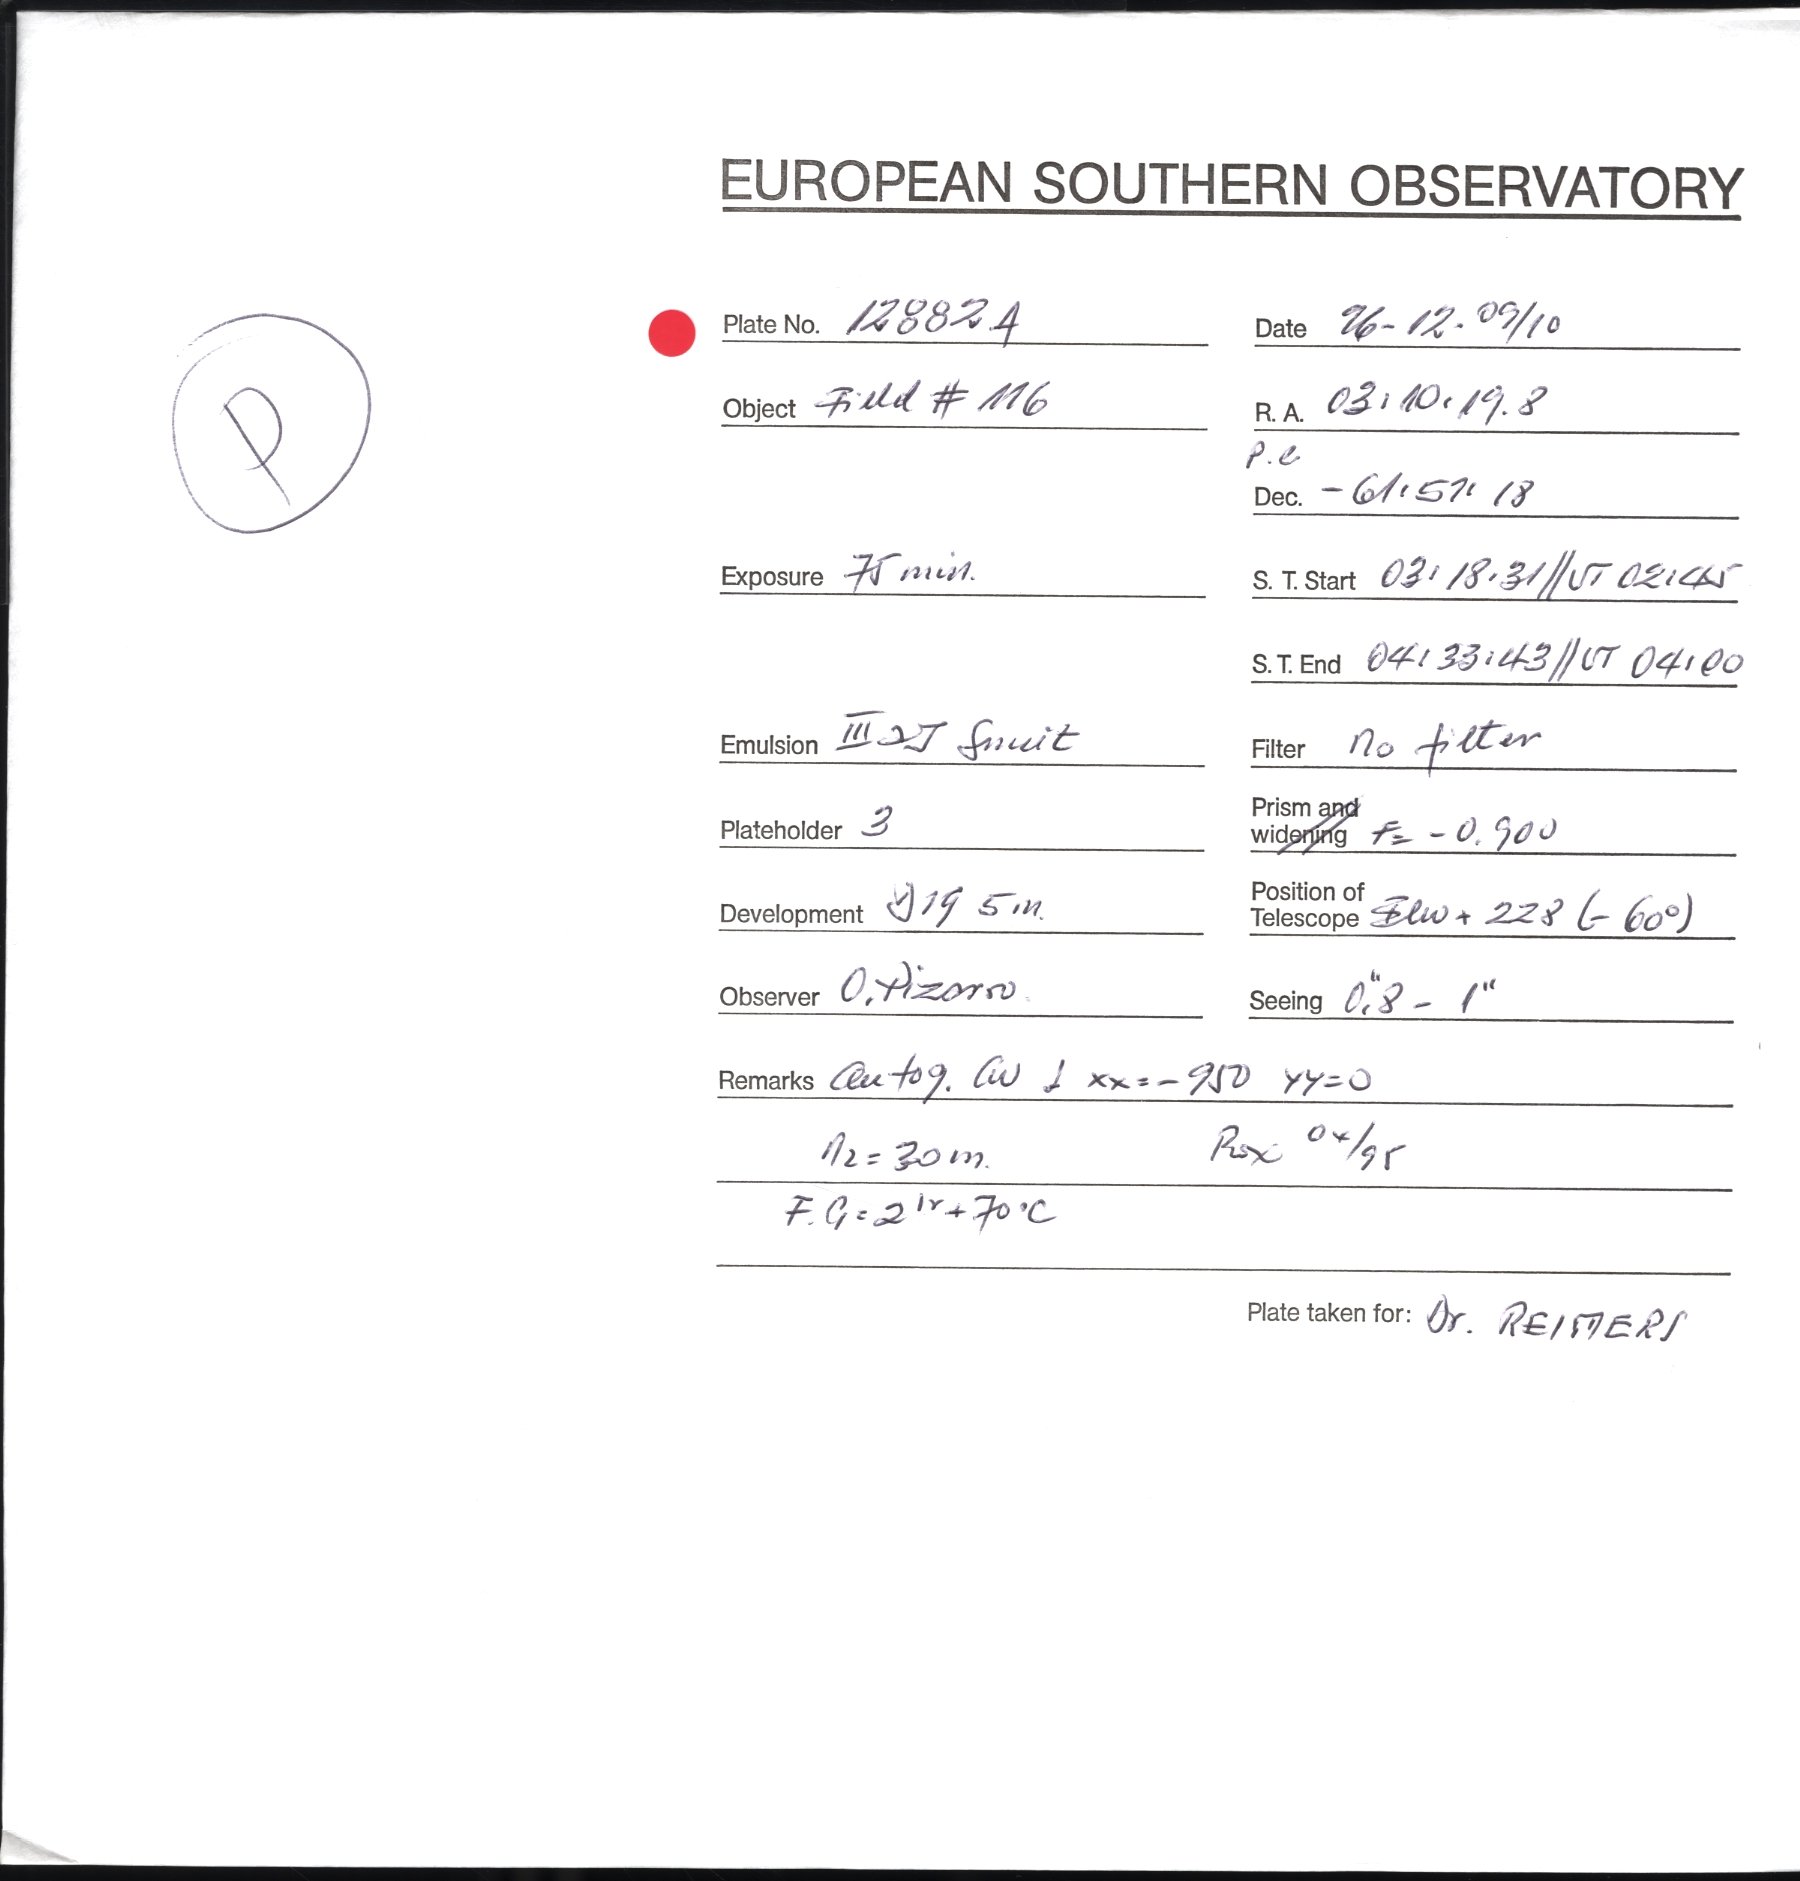 EUROPEAN SOUTHERN OBSERVATORY
Plate No. 12882A
Date 96-12-09/10
Object Field # 116
R. A. 03:10:19.8
P.e
Dec. -61:57:18
Exposure 75 min.
S. T. Start 03:18:31//UT 02:45
S. T. End 04:33:43//UT 04:00
Emulsion IIIaJ
Filter no filter
Plateholder 3
Prism and widening F= -0.900
Development D19 5m.
Position of Telescope + 228 (-60°)
Observer O. Pizarro.
Seeing 0".8 - 1"
Remarks Autog. xx=-950 yy=0
N2=30m. 04/95
F.G=2hr+70°C
Plate taken for: Dr. REIMERS
P